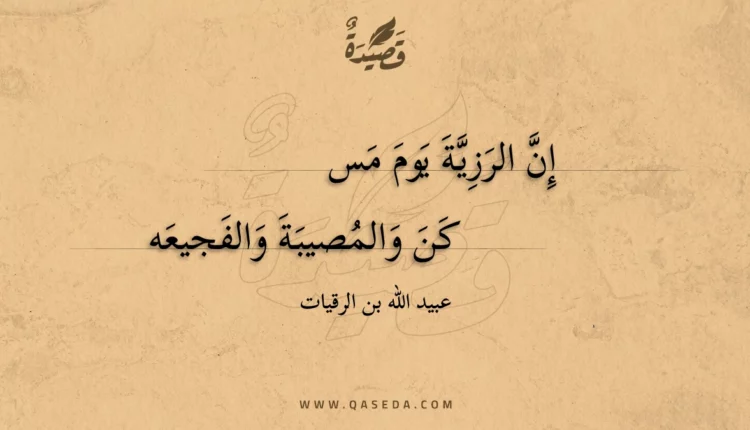 قَصِيْدَةٌ
إِنَّ الرَزِيَّةَ يَومَ مَس
كَنَ وَالمُصيبَةَ وَالفَجيعَه
عبيد الله بن الرقيات
WWW.QASEDA.COM